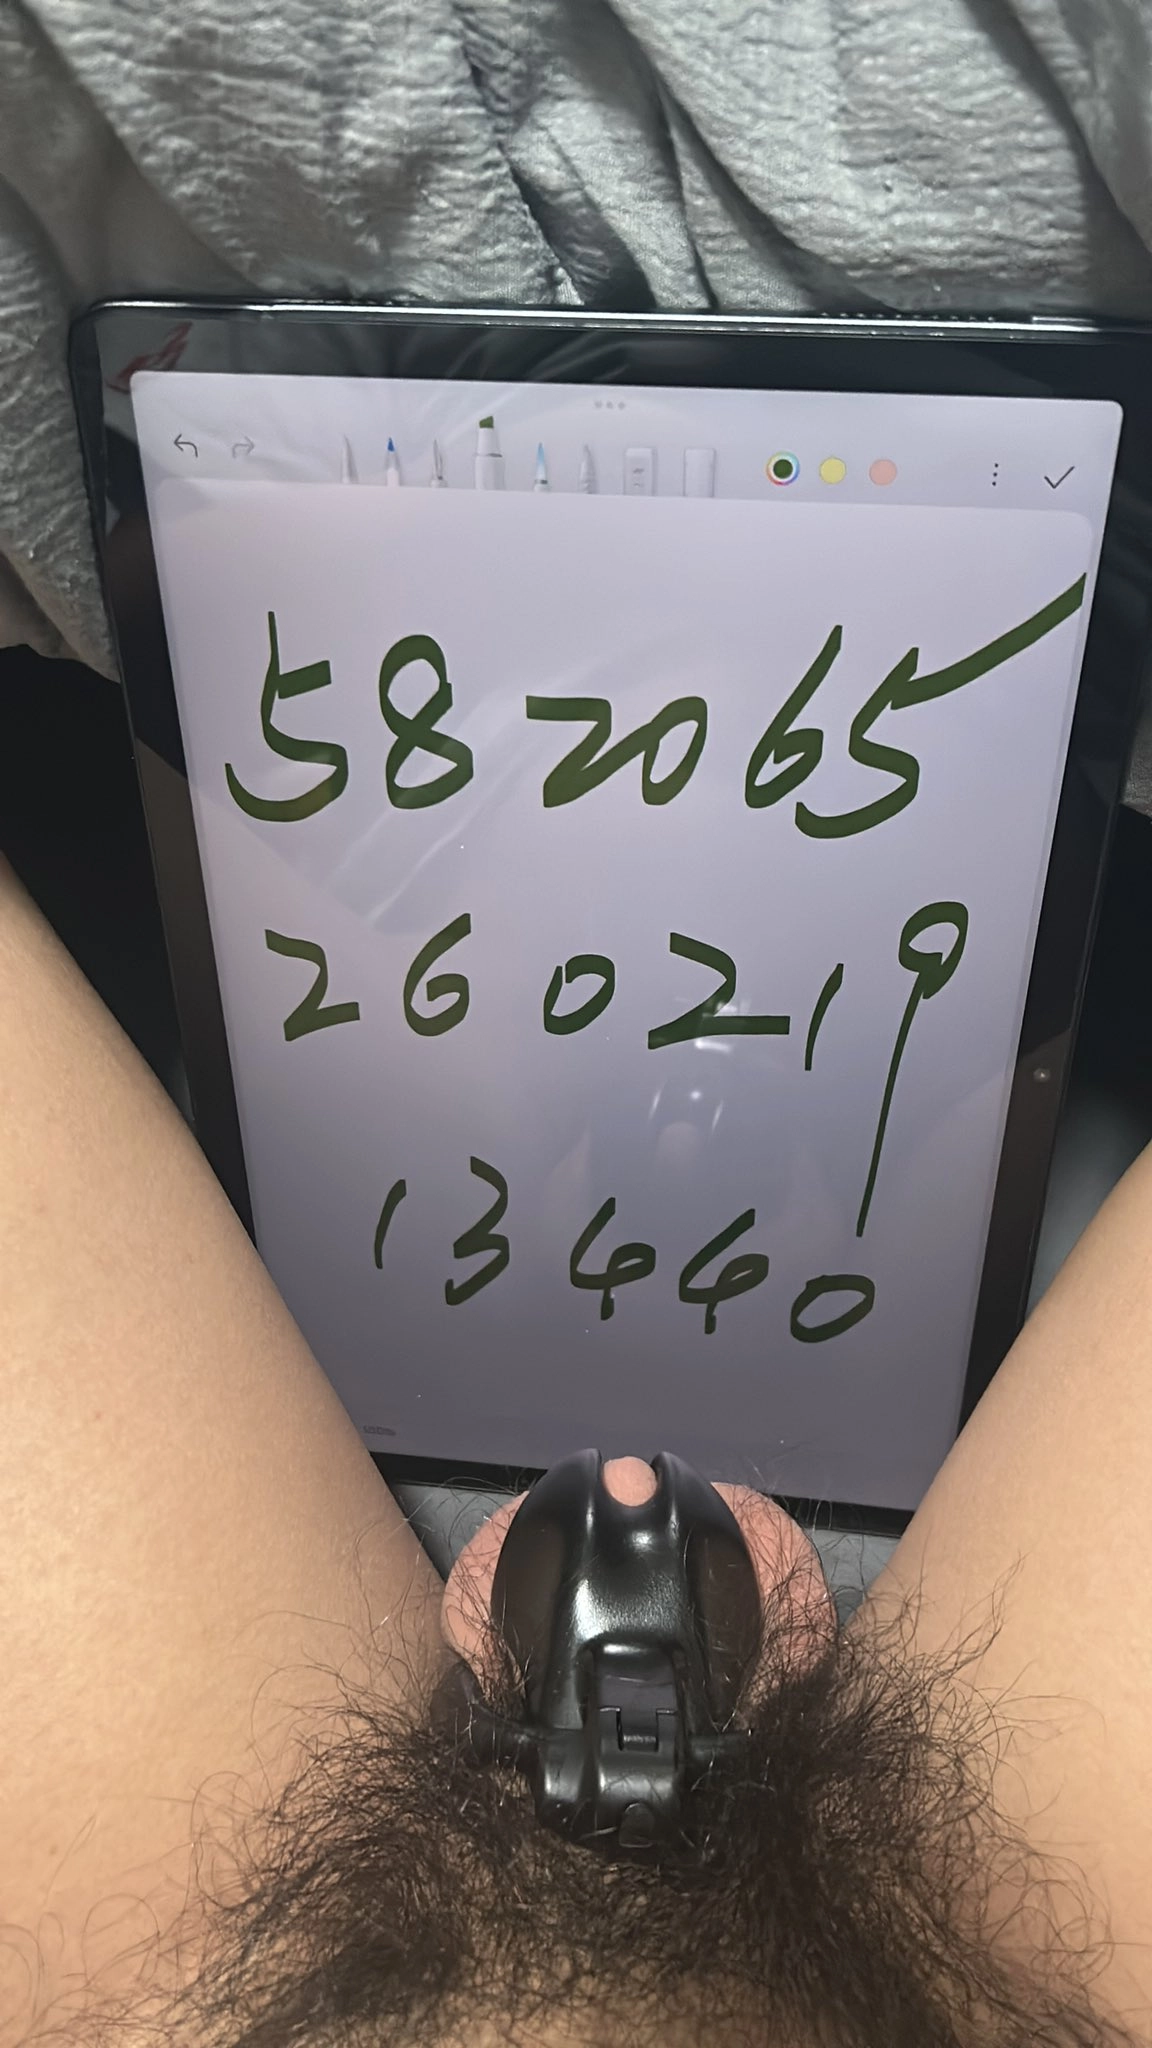 582065
260219
13440